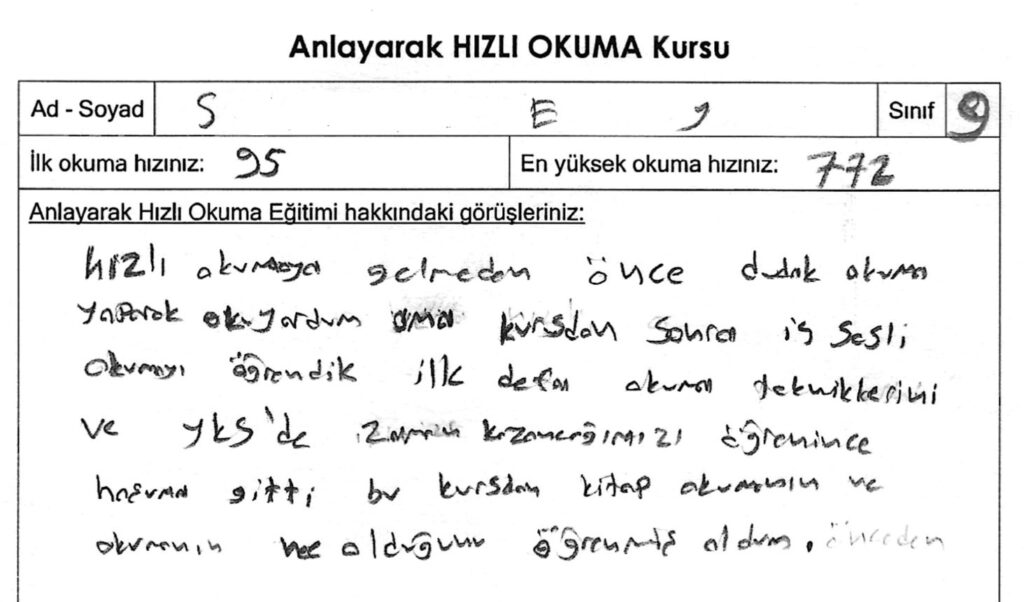 Anlayarak HIZLI OKUMA Kursu
Ad - Soyad S E Sınıf 9
İlk okuma hızınız: 95 En yüksek okuma hızınız: 772
Anlayarak Hızlı Okuma Eğitimi hakkındaki görüşleriniz:
hızlı okumaya gelmeden önce dudak okuma
yaparak okuyordum ama kursdan sonra iç sesli
okumayı öğrendik ilk defa okuma tekniklerini
ve YKS'de zaman kazancağımızı öğrenince
hoşuma gitti bu kursdan kitap okumanın ve
okumanın nee olduğunu öğrenmiş oldum. önceden